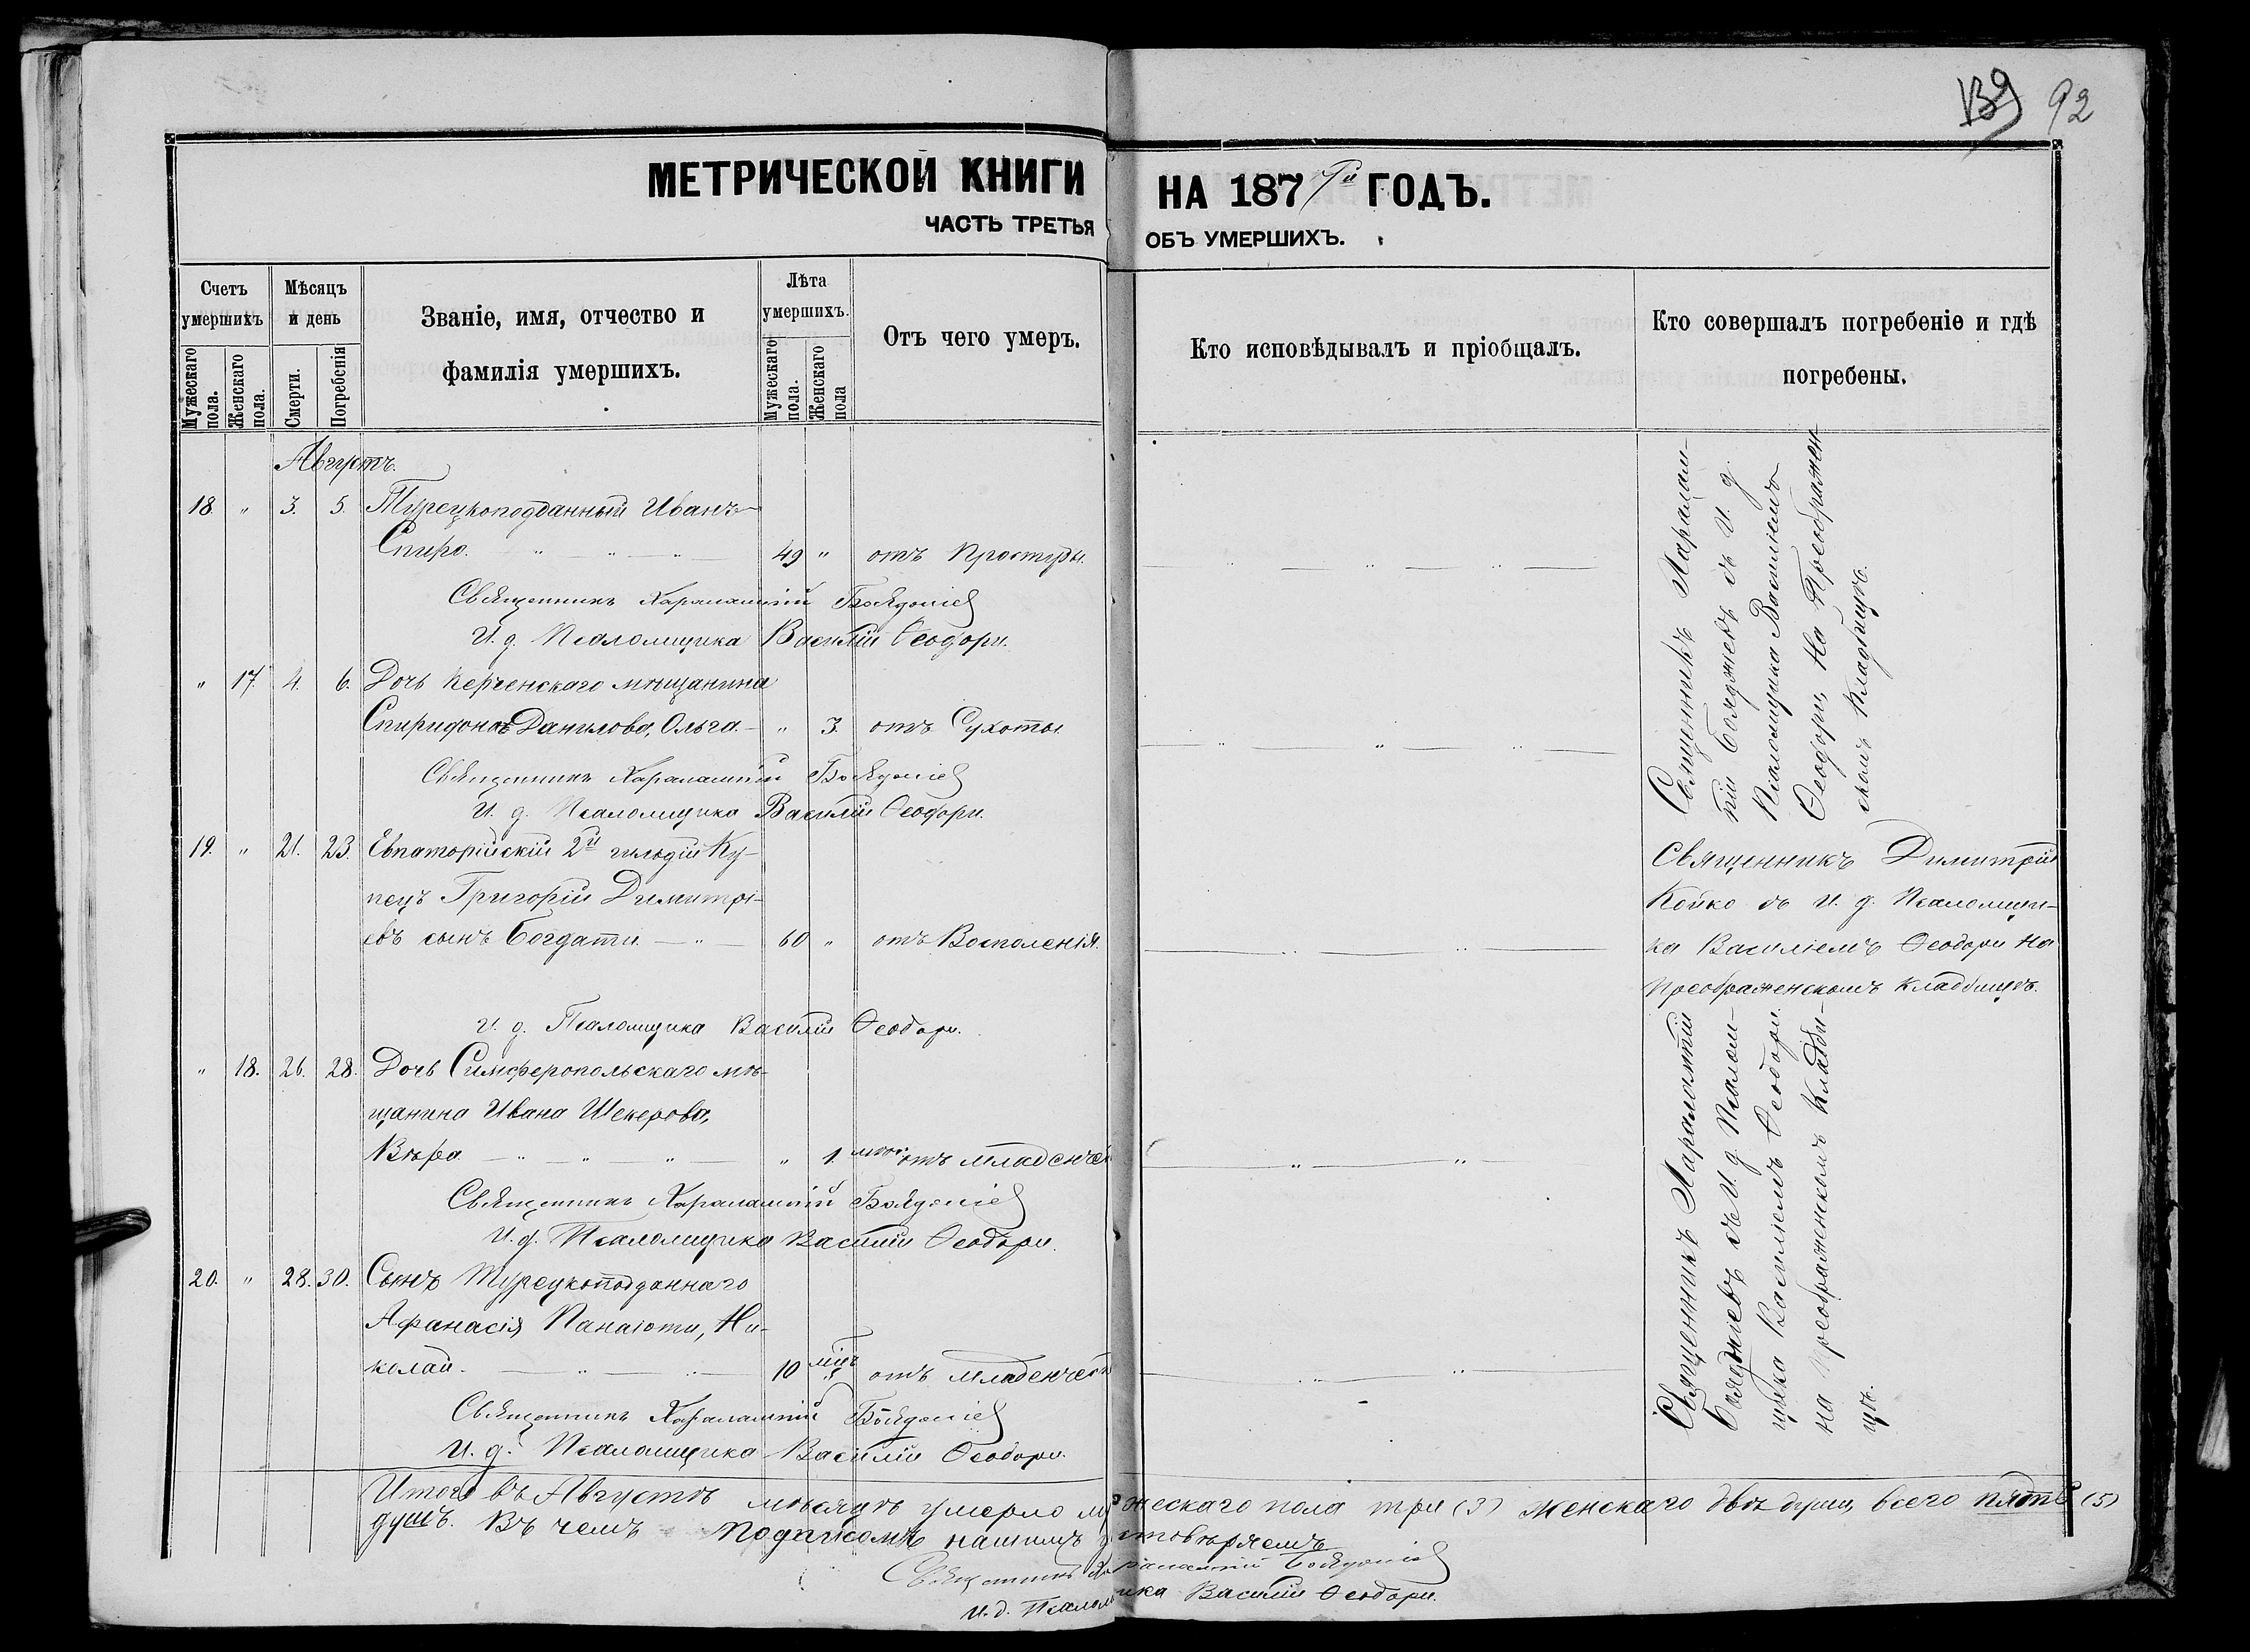 139 92
МЕТРИЧЕСКОЙ КНИГИ НА 187 ГОДЪ.
ЧАСТЬ ТРЕТЬЯ ОБЪ УМЕРШИХЪ.
Счетъ умершихъ
Мужескаго пола.
Женскаго пола.
Мѣсяцъ и день
Смерти.
Погребенія
Званіе, имя, отчество и
фамилія умершихъ.
Лѣта умершихъ.
Мужескаго пола.
Женскаго пола
Отъ чего умеръ.
Кто исповѣдывалъ и пріобщалъ.
Кто совершалъ погребеніе и гдѣ
погребены.
Августъ.
18. " 3. 5. Турецкоподданный Иванъ
Спиро. 49 " отъ Простуды.
Священникъ Харалампій
И. д. Псаломщика Василій Ѳеодори.
Священникъ Харалам-
пій Бояджіевъ съ И. д.
Псаломщика Василіемъ
Ѳеодори, на Преображен-
скомъ Кладбищѣ.
" 17. 4. 6. Дочь Керченскаго мѣщанина
Спиридона Данилова, Ольга. " 3. отъ Сухоты
Священникъ Харалампій
И. д. Псаломщика Василій Ѳеодори.
19. " 21. 23. Евпаторійскій 2й гильдіи Ку-
пецъ Григорій Димитрі-
евъ сынъ Богдати. 60 " отъ Восполенія.
Священникъ Димитрій
Койко съ И. д. Псаломщи-
ка Василіемъ Ѳеодори на
Преображенскомъ Кладбищѣ.
И. д. Псаломщика Василій Ѳеодори.
" 18. 26. 28. Дочь Симферопольскаго мѣ-
щанина Ивана Шекерова,
Вѣра " 1. отъ младенчес
Священникъ Харалампій
И. д. Псаломщика Василій Ѳеодори.
Священникъ Харалампій
Бояджіевъ съ И. д. Псалом-
щика Василіемъ Ѳеодори.
на Преображенскомъ Кладби-
щѣ.
20. " 28. 30. Сынъ Турецкоподданнаго
Афанасія Панаіоти, Ни-
колай. 10 міц " отъ младенчест
Священникъ Харалампій
И. д. Псаломщика Василій Ѳеодори.
Итого въ Августѣ мѣсяцѣ умерло мужескаго пола три (3) женскаго двѣ души, всего пять (5)
душъ. Въ чемъ подписомъ нашимъ
Священникъ Харалампій
И. д. Псаломщика Василій Ѳеодори.